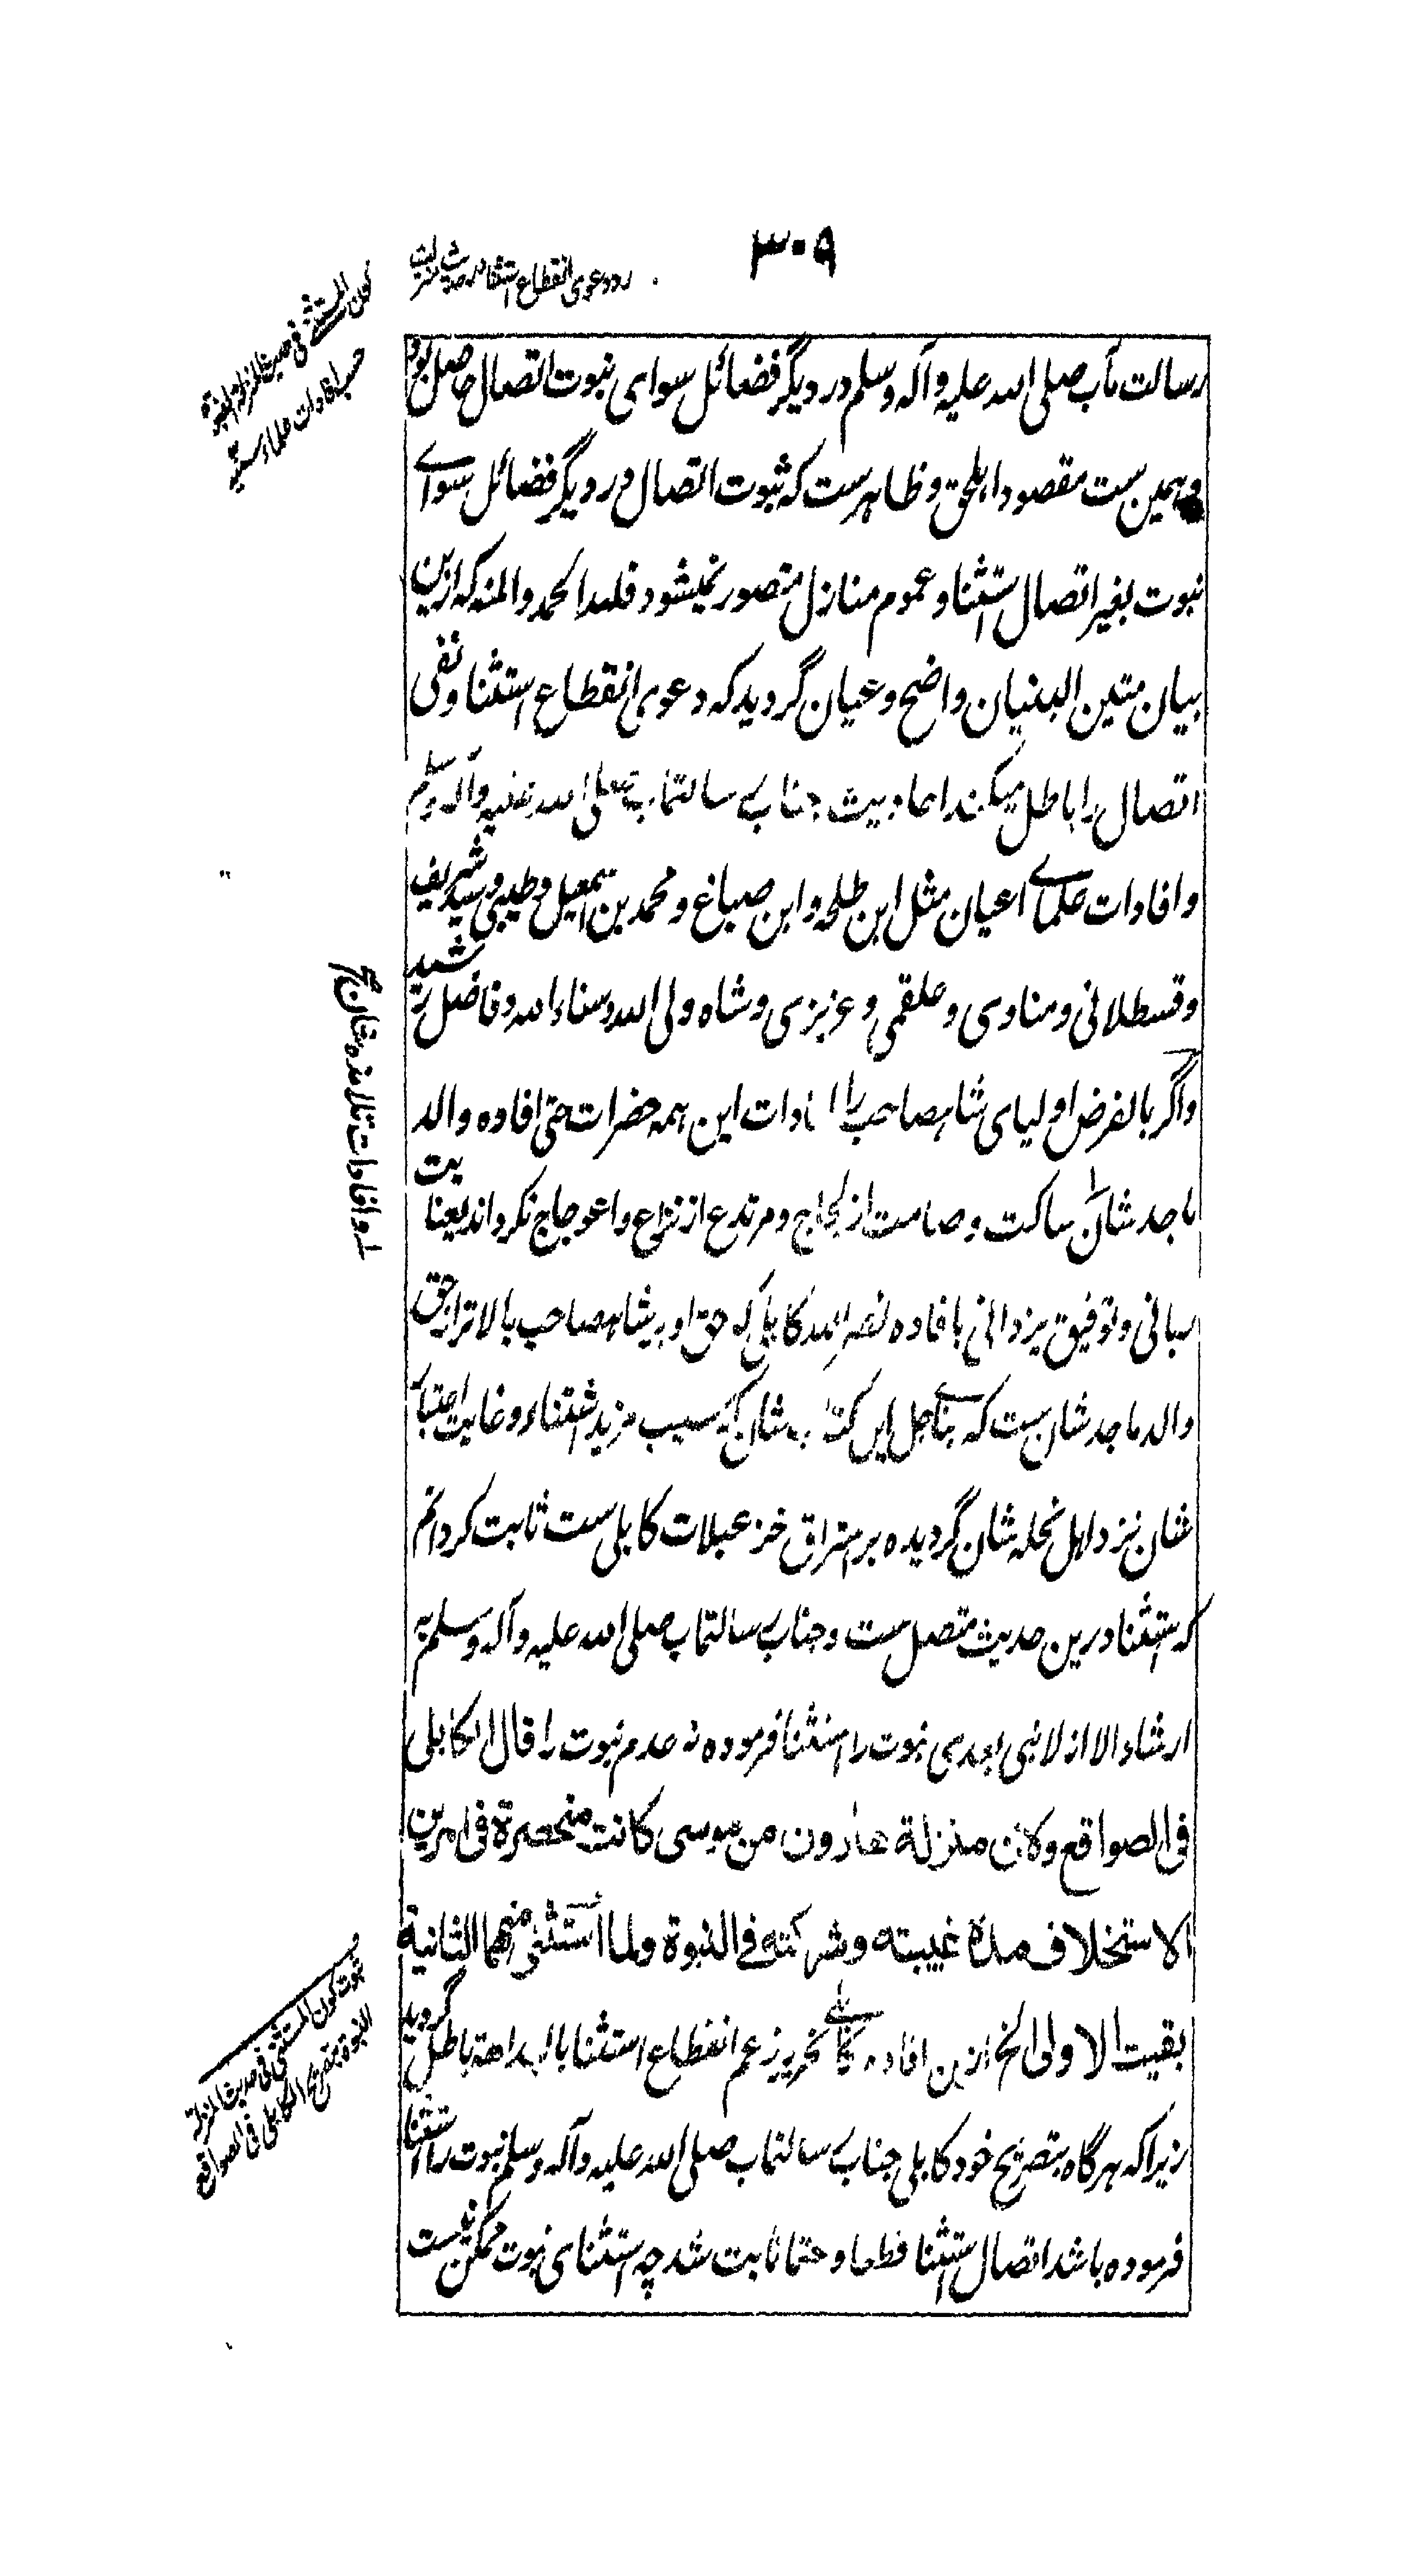 ۳۰۹
رد دعوی انقطاع استثنا در حدیث منزلت
کون المستثنی فی حدیث المنزلة النبوة
حسب افادات علماء سنیه
رسالت مآب صلی الله علیه وآله وسلم در دیگر فضائل سوای نبوت اتصال حاصل بود
و همین ست مقصود اهلحق و ظاهرست که ثبوت اتصال در دیگر فضائل سوای
نبوت بغیر اتصال استثنا و عموم منازل متصور نمیشود فلله الحمد والمنه که ازین
بیان متین البنیان واضح و عیان گردید که دعوی انقطاع استثنا و نفی
اتصال را باطل میکند احادیث جناب رسالتمآب صلی الله علیه وآله وسلم
و افادات علمای اعیان مثل ابن طلحه و ابن صباغ و محمد بن اسمعیل و طیبی و سید شریف
و قسطلانی و مناوی و علقمی و عزیزی و شاه ولی الله و سناء الله و فاضل رشید
و اگر بالفرض اولیای شاهصاحب را افادات این همه حضرات حتی افاده والد
ماجد شان ساکت و صامت از لجاج و مرتدع از نزاع و اعوجاج نکرداند بعنایت
ربانی و توفیق یزدانی بافاده نصر الله کابلی که حق او بر شاهصاحب بالاتر از حق
والد ماجد شان ست که بنای جل این کتاب شان که سبب مزید اشتهار و غایت اعتبار
شان نزد اهل نحله شان گردیده بر استراق خزعبلات کابلی ست ثابت کردانم
که استثنا درین حدیث متصل ست و جناب رسالتمآب صلی الله علیه وآله وسلم به
ارشاد الا انه لا نبی بعدی نبوت را استثنا فرموده نه عدم نبوت را قال الکابلی
فی الصواقع ولان منزلة هارون من موسی کانت منحصرة فی امرین
الاستخلاف مدة غیبته وشرکته فی النبوة ولما استثنی منهما الثانیة
بقیت الاولی الخ ازین افاده کابلی نحریر زعم انقطاع استثنا بالبداهة باطل گردید
زیرا که هر گاه بتصریح خود کابلی جناب رسالتمآب صلی الله علیه وآله وسلم نبوت را استثنا
فرموده باشد اتصال استثنا قطعا و حتما ثابت شد چه استثنای نبوت ممکن نیست
و افادات تلامذه شان
ثبوت کون المستثنی فی حدیث المنزلة
النبوة بتصریح الکابلی فی الصواقع